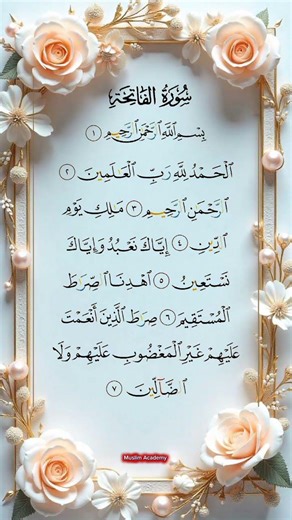 سُورَةُ الفَاتِحَةِ
بِسْمِ ٱللَّهِ ٱلرَّحْمَٰنِ ٱلرَّحِيمِ ١
ٱلْحَمْدُ لِلَّهِ رَبِّ ٱلْعَٰلَمِينَ ٢
ٱلرَّحْمَٰنِ ٱلرَّحِيمِ ٣ مَٰلِكِ يَوْمِ
ٱلدِّينِ ٤ إِيَّاكَ نَعْبُدُ وَإِيَّاكَ
نَسْتَعِينُ ٥ ٱهْدِنَا ٱلصِّرَٰطَ
ٱلْمُسْتَقِيمَ ٦ صِرَٰطَ ٱلَّذِينَ أَنْعَمْتَ
عَلَيْهِمْ غَيْرِ ٱلْمَغْضُوبِ عَلَيْهِمْ وَلَا
ٱلضَّآلِّينَ ٧
Muslim Academy